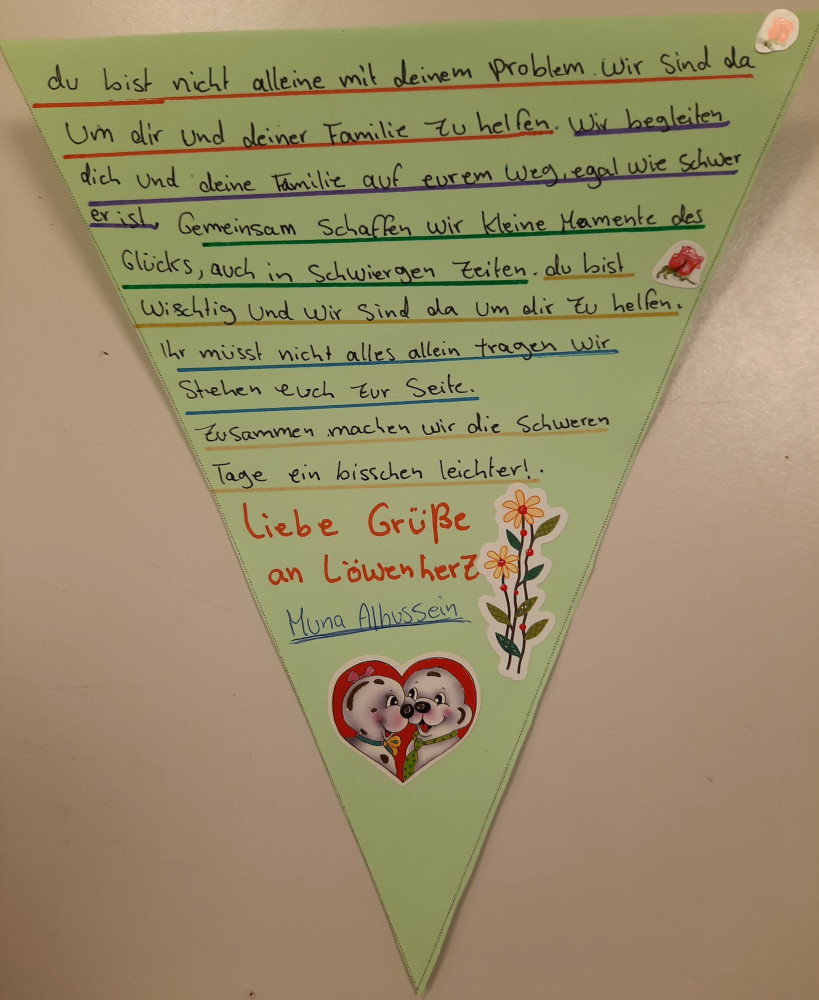 du bist nicht alleine mit deinem Problem. Wir sind da
Um dir und deiner Familie zu helfen. Wir begleiten
dich und deine Familie auf eurem Weg, egal wie schwer
er ist. Gemeinsam schaffen wir kleine Momente des
Glücks, auch in schwiergen Zeiten. du bist
Wischtig und wir sind da um dir zu helfen.
Ihr müsst nicht alles allein tragen wir
stehen euch zur Seite.
Zusammen machen wir die schweren
Tage ein bisschen leichter!.
Liebe Grüße
an Löwenherz
Muna Alhussein